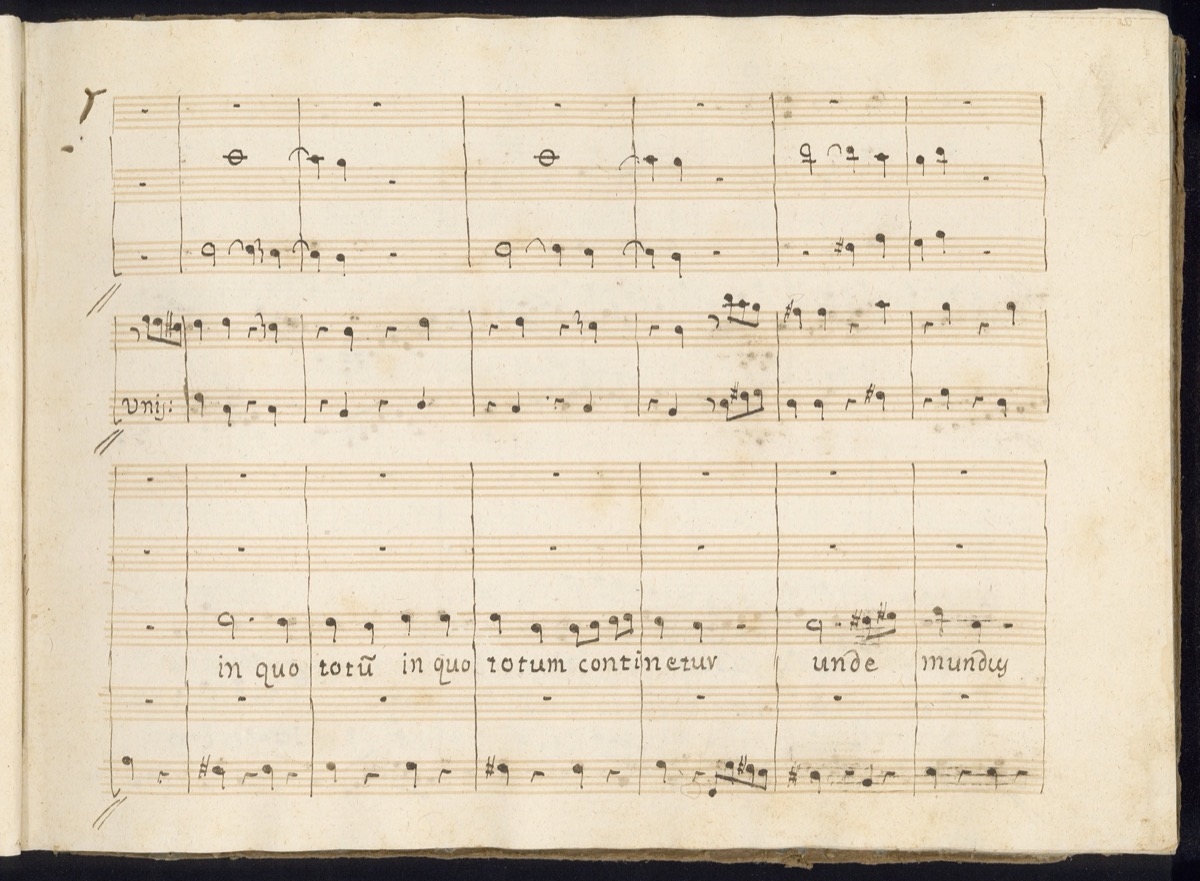 Vnis:
in quo totū in quo totum continetur unde mundus